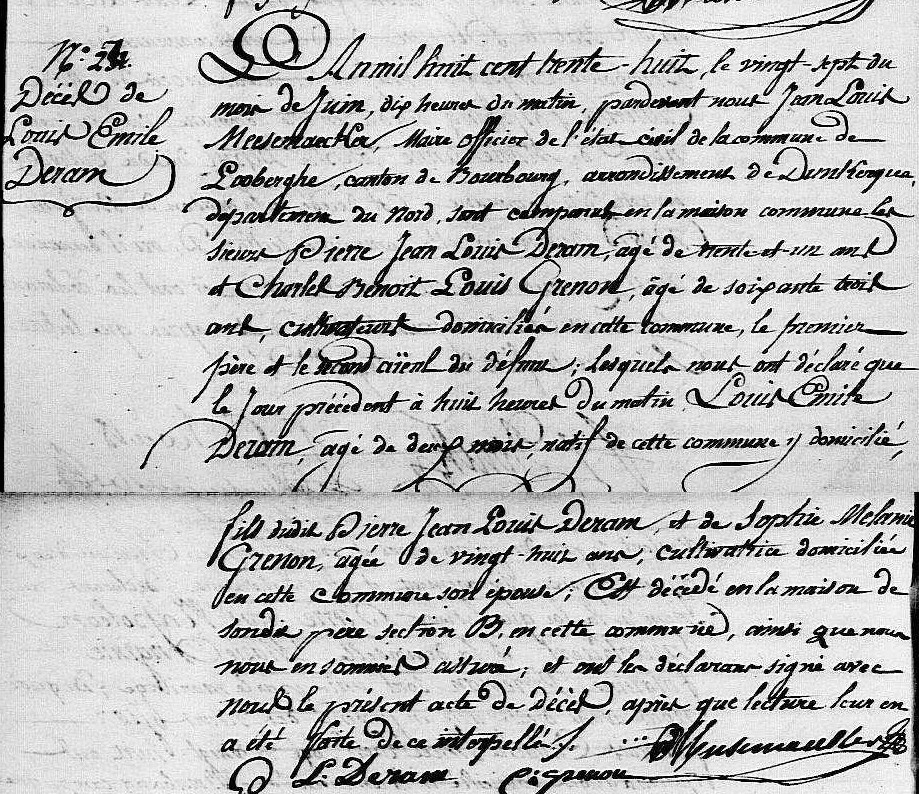 N.° 23.
Décès de
Louis Emile
Deram
L'An mil huit cent trente-huit, le vingt-sept du
mois de Juin, dix heures du matin, pardevant nous Jean Louis
Meesemaecker, Maire officier de l'état civil de la commune de
Looberghe, canton de Bourbourg, arrondissement de Dunkerque,
département du Nord, sont comparus en la maison commune les
sieurs Pierre Jean Louis Deram, agé de trente et un ans
et Charles Benoit Louis Grenon, âgé de soixante trois
ans, cultivateurs domiciliés en cette commune, le premier
père et le second aïeul du défunt; lesquels nous ont déclaré que
le Jour précédent à huit heures du matin Louis Emile
Deram, âgé de deux mois, natif de cette commune y domicilié,
fils dudit Pierre Jean Louis Deram, et de Sophie Melanie
Grenon, âgée de vingt-huit ans, cultivatrice domiciliée
en cette Commune son épouse; Est décédé en la maison de
sondit père section B, en cette commune, ainsi que nous
nous en sommes assuré; et ont les déclarans signé avec
nous le présent acte de décès, après que lecture leur en
a été faite de ce interpellé.
L. Deram c: grenon